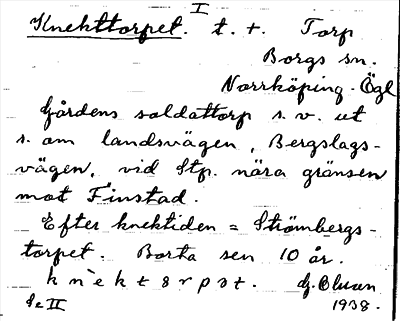 I
Knekttorpet. t. +. Torp
Borgs sn.
Norrköping. Ögl
Gårdens soldattorp s.v. ut
s. om landsvägen, Bergslags-
vägen, vid Stp. nära gränsen
mot Finstad.
Efter knektiden = Strömbergs-
torpet. Borta sen 10 år.
knèktərpət. G. Olsson
Se II 1938.